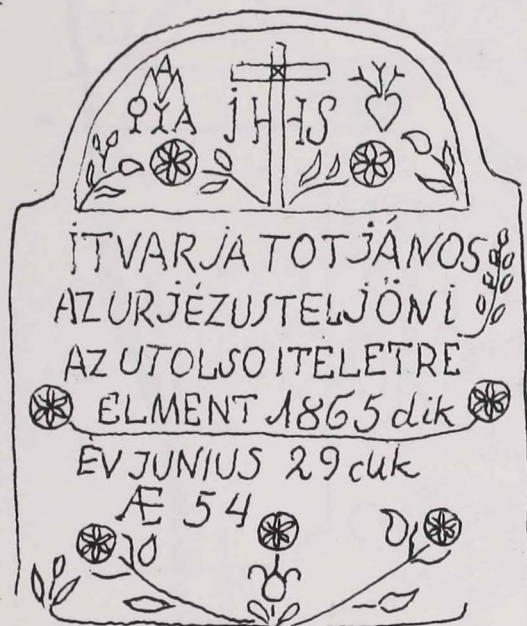 JHHS
ITVARJA TOTJÁNOS
AZURJÉZUSTELJÖNI
AZ UTOLSOITELETRE
ELMENT 1865 dik
ÉV JUNIUS 29 cuk
Æ 54